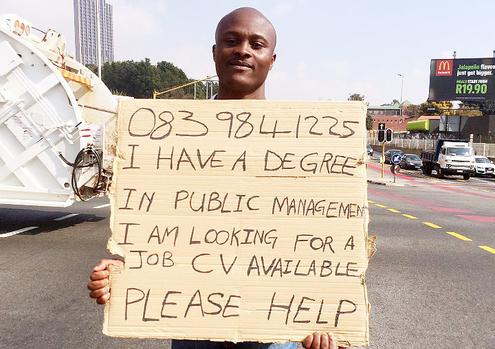 083 9841225
I HAVE A DEGREE
IN PUBLIC MANAGEMENT
I AM LOOKING FOR A
JOB CV AVAILABLE
PLEASE HELP
McDonald's
Jalapeño flavour
just got bigger.
R19.90